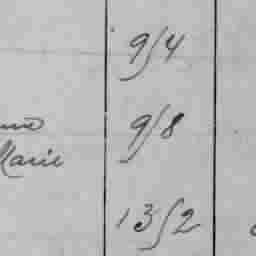 9/4
9/8
Marie
13/2